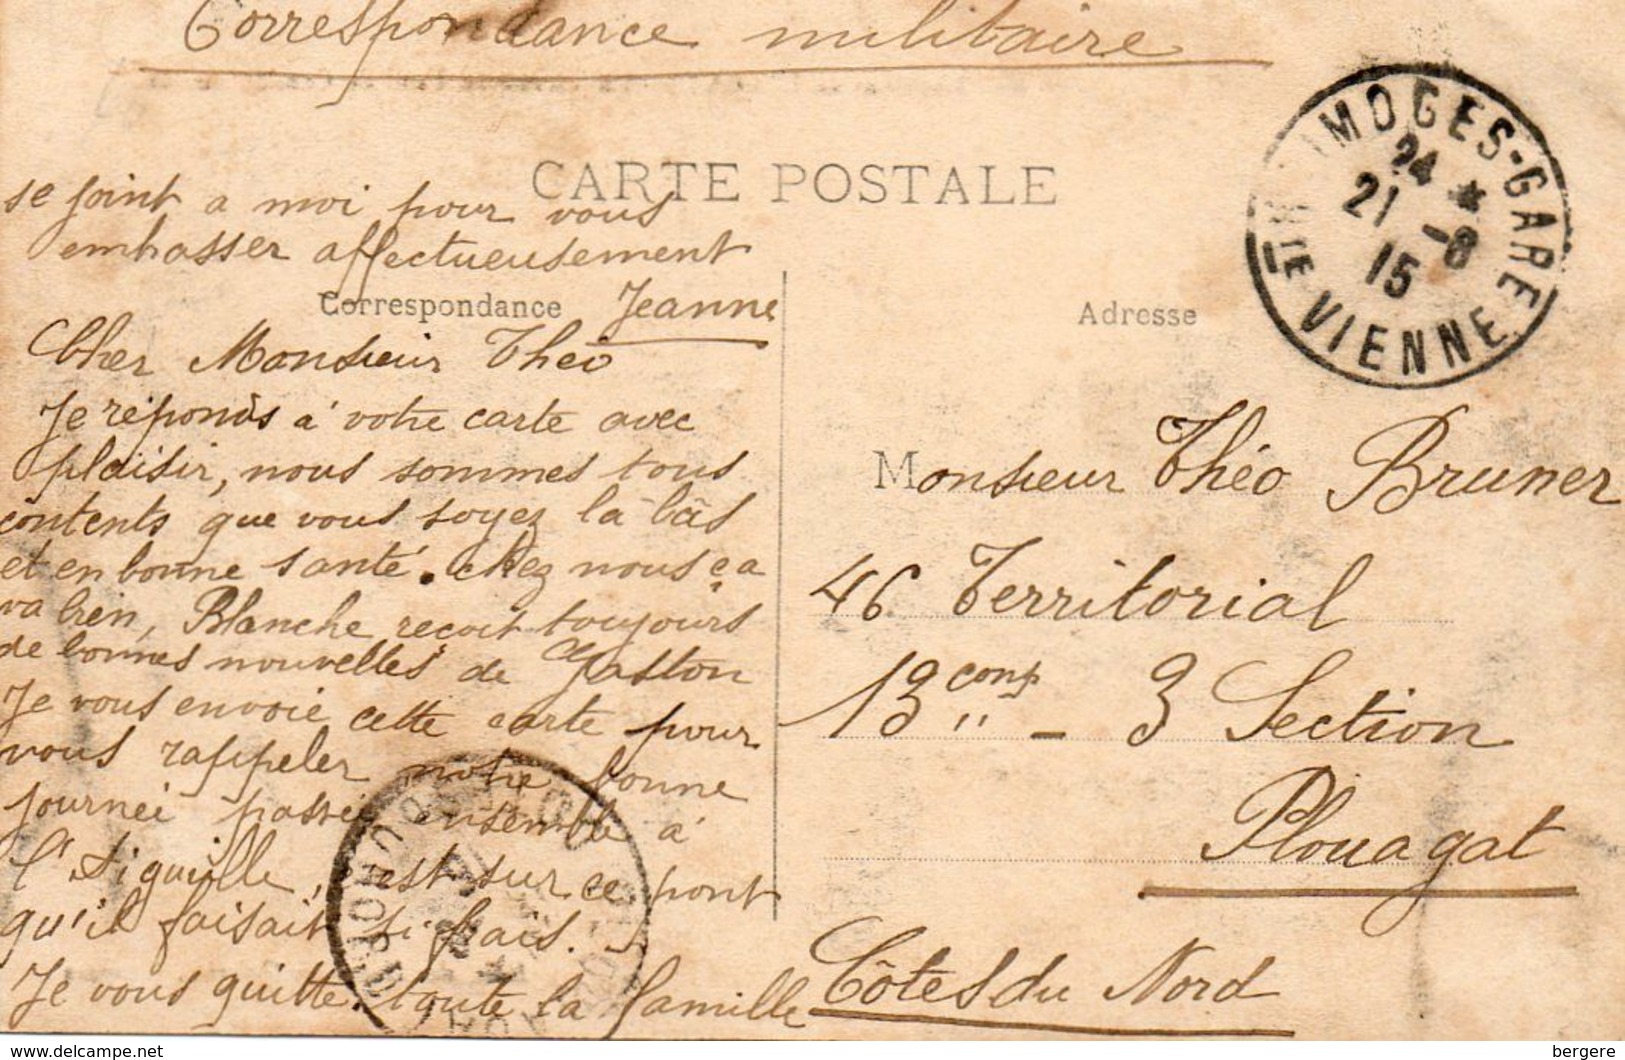 Correspondance militaire
CARTE POSTALE
se joint a moi pour vous
embrasser affectueusement
Jeanne
Correspondance
Adresse
Cher Monsieur Theo
Je réponds à votre carte avec
plaisir, nous sommes tous
contents que vous soyez la bàs
et en bonne santé. chez nous ça
va bien, Blanche reçoit toujours
de bonnes nouvelles de Gaston
Je vous envoie cette carte pour
vous rappeler notre bonne
journeé passée ensemble à
l'Aiguille, est sur ce pont
qu'il faisait si frais.
Je vous quitte toute la famille
IMOGES-GARE
24 *
21 -8
15
Hte VIENNE
Monsieur Théo Bruner
46 Territorial
13 comp - 3 Section
Plouagat
Côtes du Nord
delcampe.net
bergere